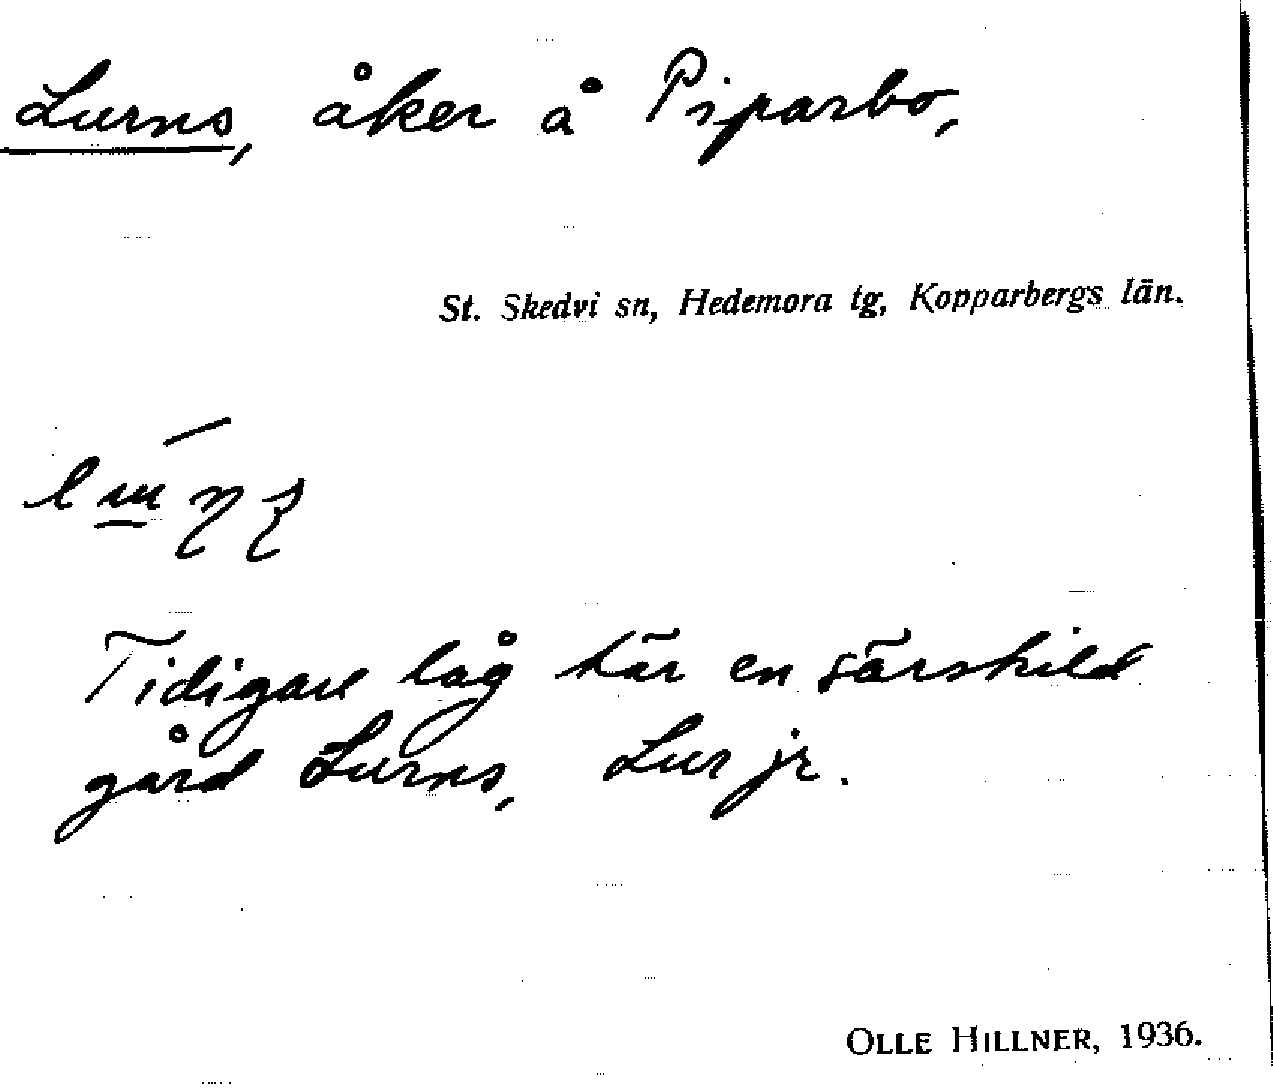 Lurns, åker å Piparbo,
St. Skedvi sn, Hedemora tg, Kopparbergs län.
Tidigare låg här en särskild
gård Lurns, Lur jr.
OLLE HILLNER, 1936.